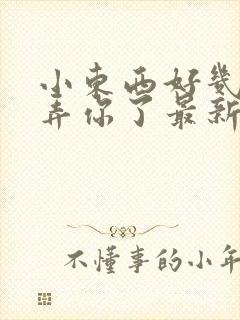 小东西好幾
弄你了最新
不懂事的小年